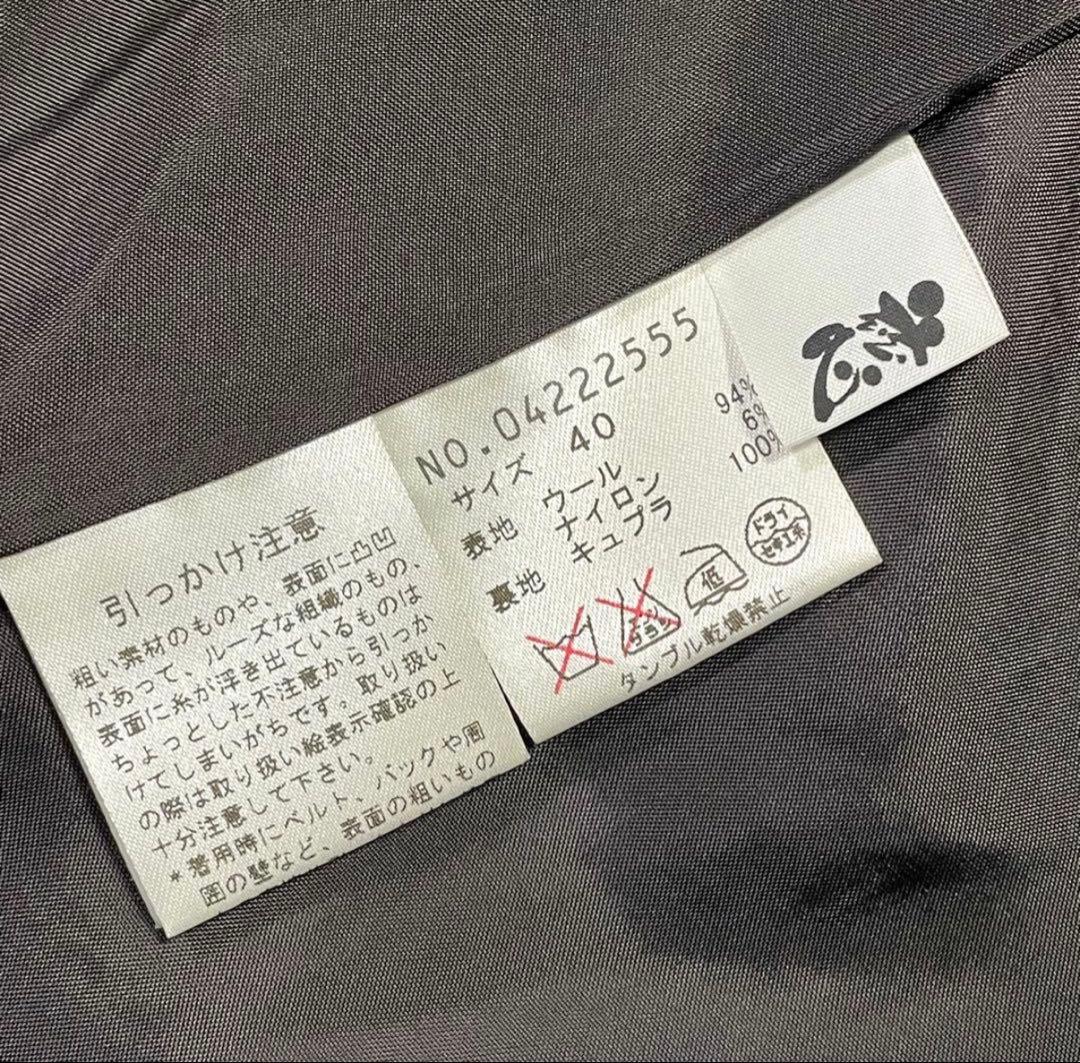 引っかけ注意
粗い素材のものや、表面に凸凹
があって、ルーズな組織のもの、
表面に糸が浮き出ているものは
ちょっとした不注意から引っか
けてしまいがちです。取り扱い
の際は取り扱い絵表示確認の上
十分注意して下さい。
*着用時にベルト、バックや周
囲の壁など、表面の粗いもの
NO.04222555
サイズ 40
表地 ウール 94%
ナイロン 6%
裏地 キュプラ 100%
エンソ サラシ
低
ドライ
セキユ系
タンブル乾燥禁止